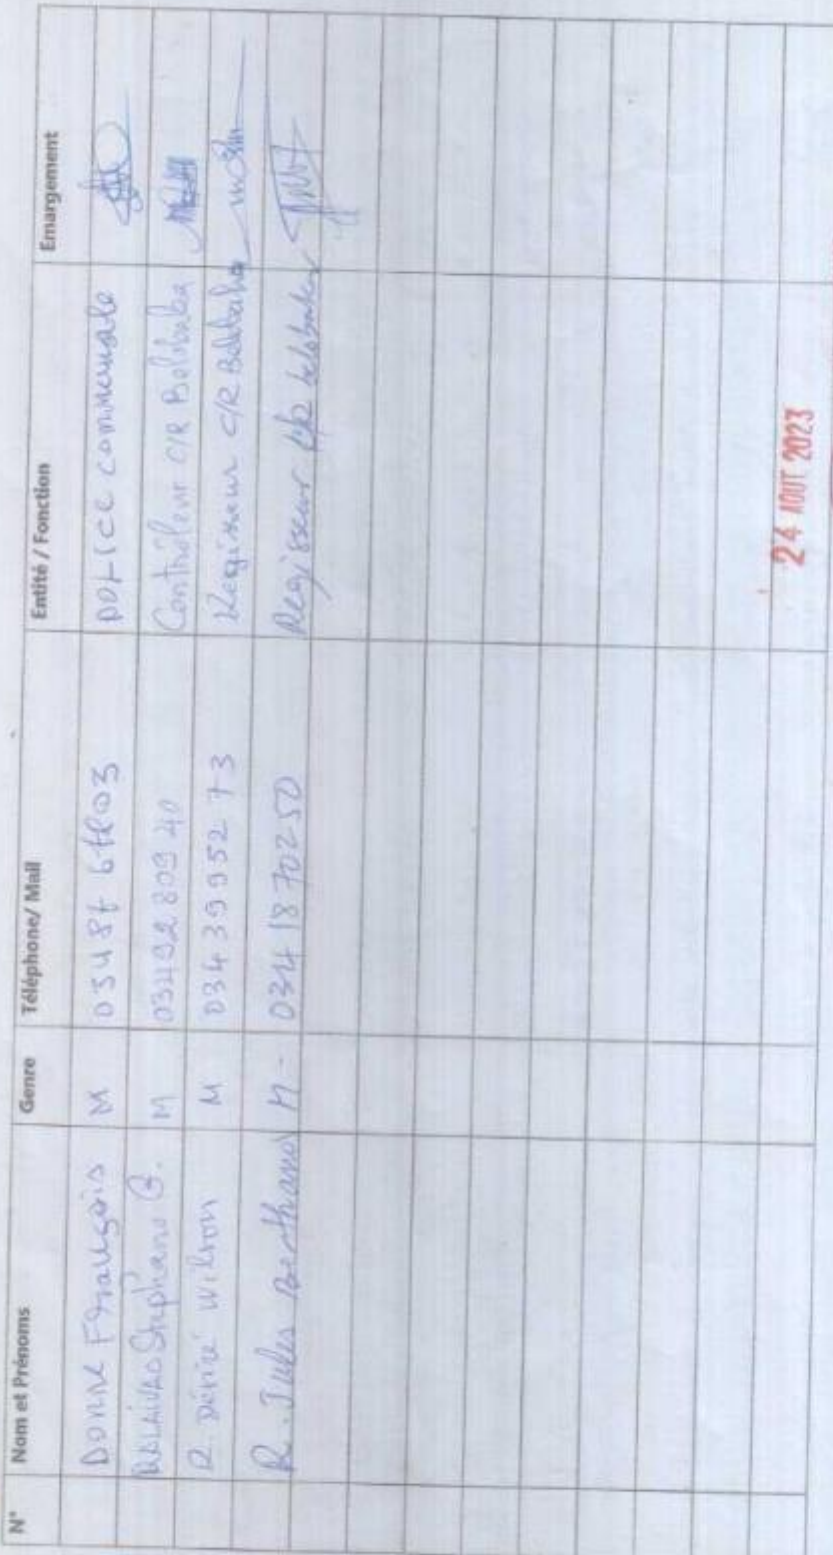 N° Nom et Prénoms Genre Téléphone/ Mail Entité / Fonction Emargement
Donné François M POLICE communale
Stéphano G. M 0349280940 Contrôleur C/R Belobaka
R. Désiré Wilson M 0343995273 Régisseur C/R Belobaka
R. Jules Berthand M - 0341870250 Régisseur C/R belobaka
24 AOUT 2023